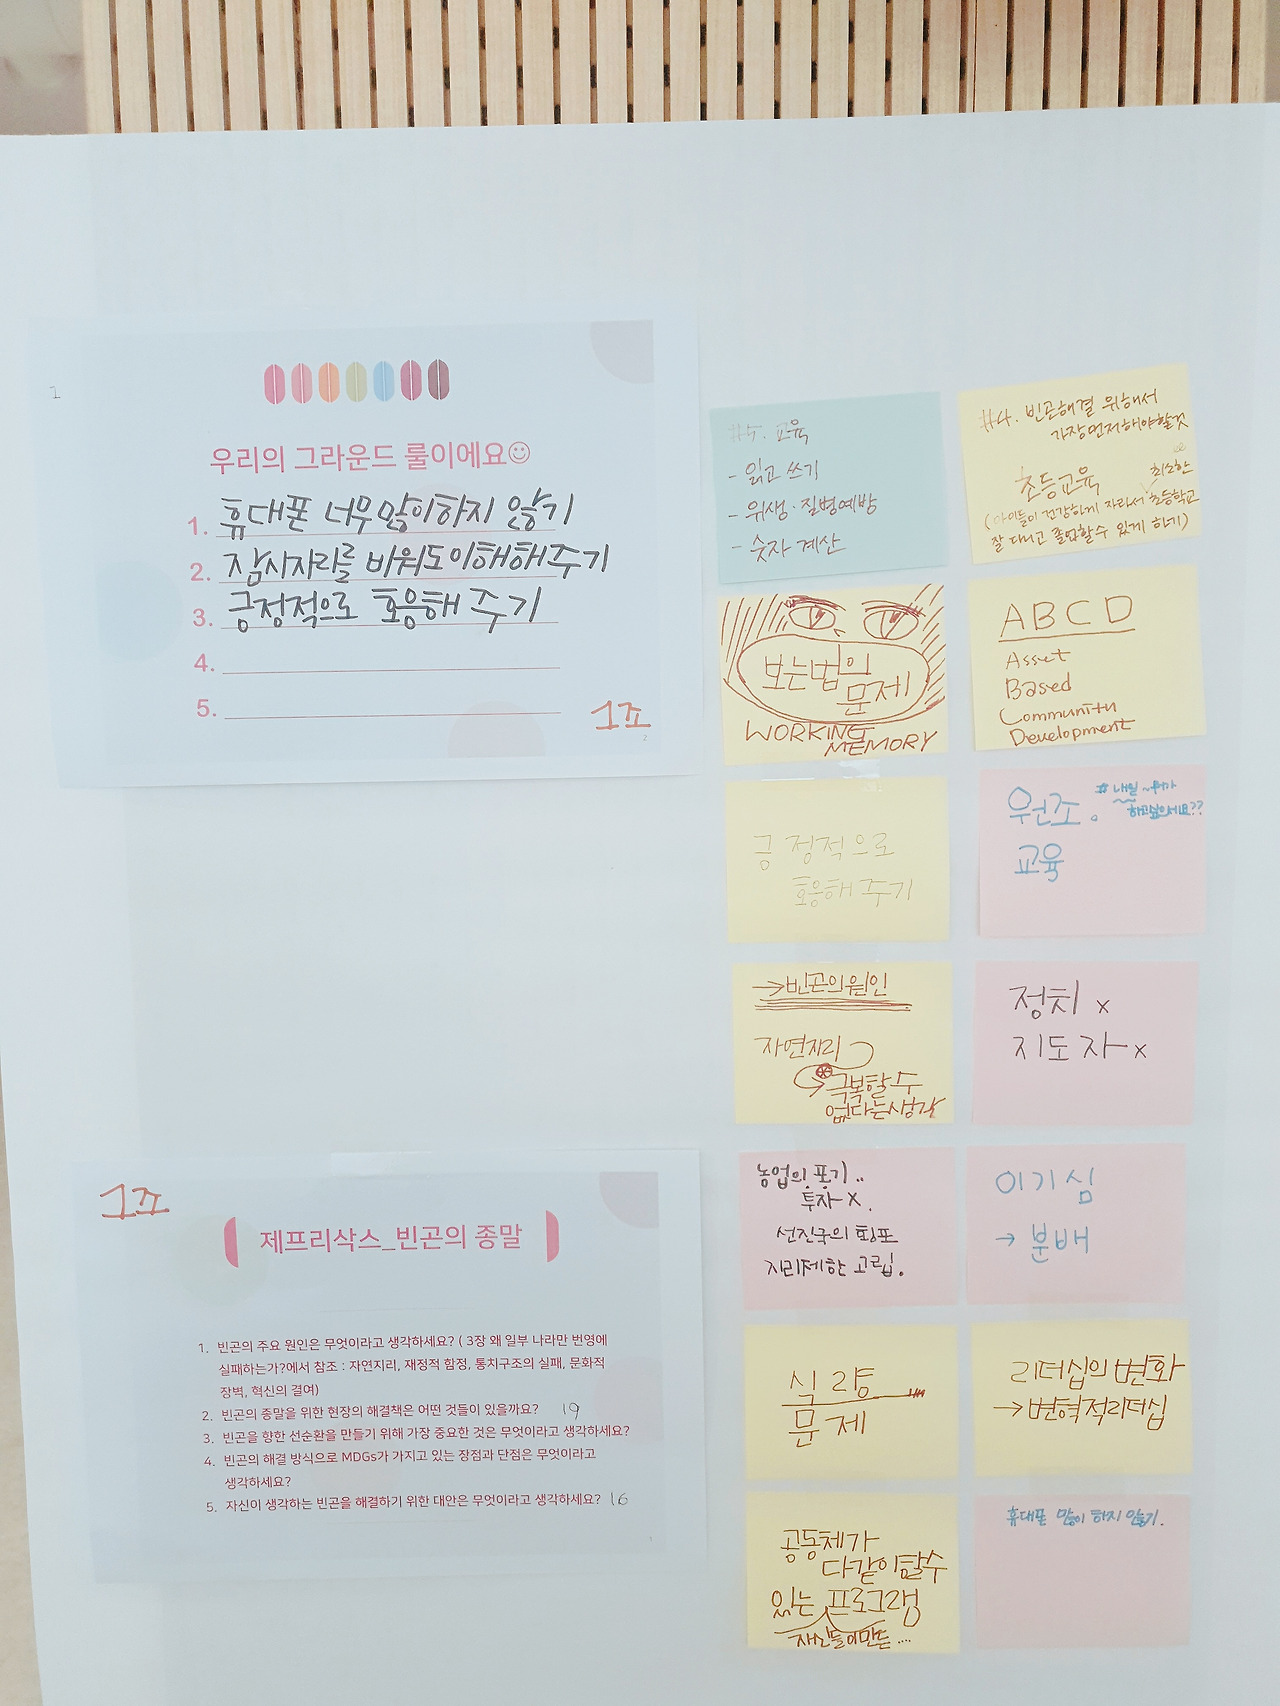 1
우리의 그라운드 룰이에요
1. 휴대폰 너무 많이하지 않기
2. 잠시자리를 비워도이해해주기
3. 긍정적으로 호응해 주기
4.
5.
1조
2
#5. 교육
- 읽고 쓰기
- 위생·질병예방
- 숫자 계산
#4. 빈곤해결 위해서
가장먼저해야할것
최소한
초등교육
(아이들이 건강하게 자라서 초등학교
잘 다니고 졸업할수 있게 하기)
보는법의
문제
WORKING
MEMORY
ABCD
Asset
Based
Community
Development
긍정적으로
호응해 주기
원조.
# 내일 ~뭐가
하고싶으세요??
교육
→빈곤의원인
자연지리
극복할 수
없다는생각
정치 x
지도자 x
농업의 포기..
투자 X.
선진국의 횡포
지리제한 고립.
이기심
→ 분배
식량
문제
리더십의 변화
→변혁적리더십
공동체가
다같이할수
있는 프로그램
휴대폰 많이 하지 않기.
1조
제프리삭스_빈곤의 종말
1. 빈곤의 주요 원인은 무엇이라고 생각하세요? ( 3장 왜 일부 나라만 번영에
실패하는가?에서 참조 : 자연지리, 재정적 함정, 통치구조의 실패, 문화적
장벽, 혁신의 결여)
2. 빈곤의 종말을 위한 현장의 해결책은 어떤 것들이 있을까요? 19
3. 빈곤을 향한 선순환을 만들기 위해 가장 중요한 것은 무엇이라고 생각하세요?
4. 빈곤의 해결 방식으로 MDGs가 가지고 있는 장점과 단점은 무엇이라고
생각하세요?
5. 자신이 생각하는 빈곤을 해결하기 위한 대안은 무엇이라고 생각하세요? 16